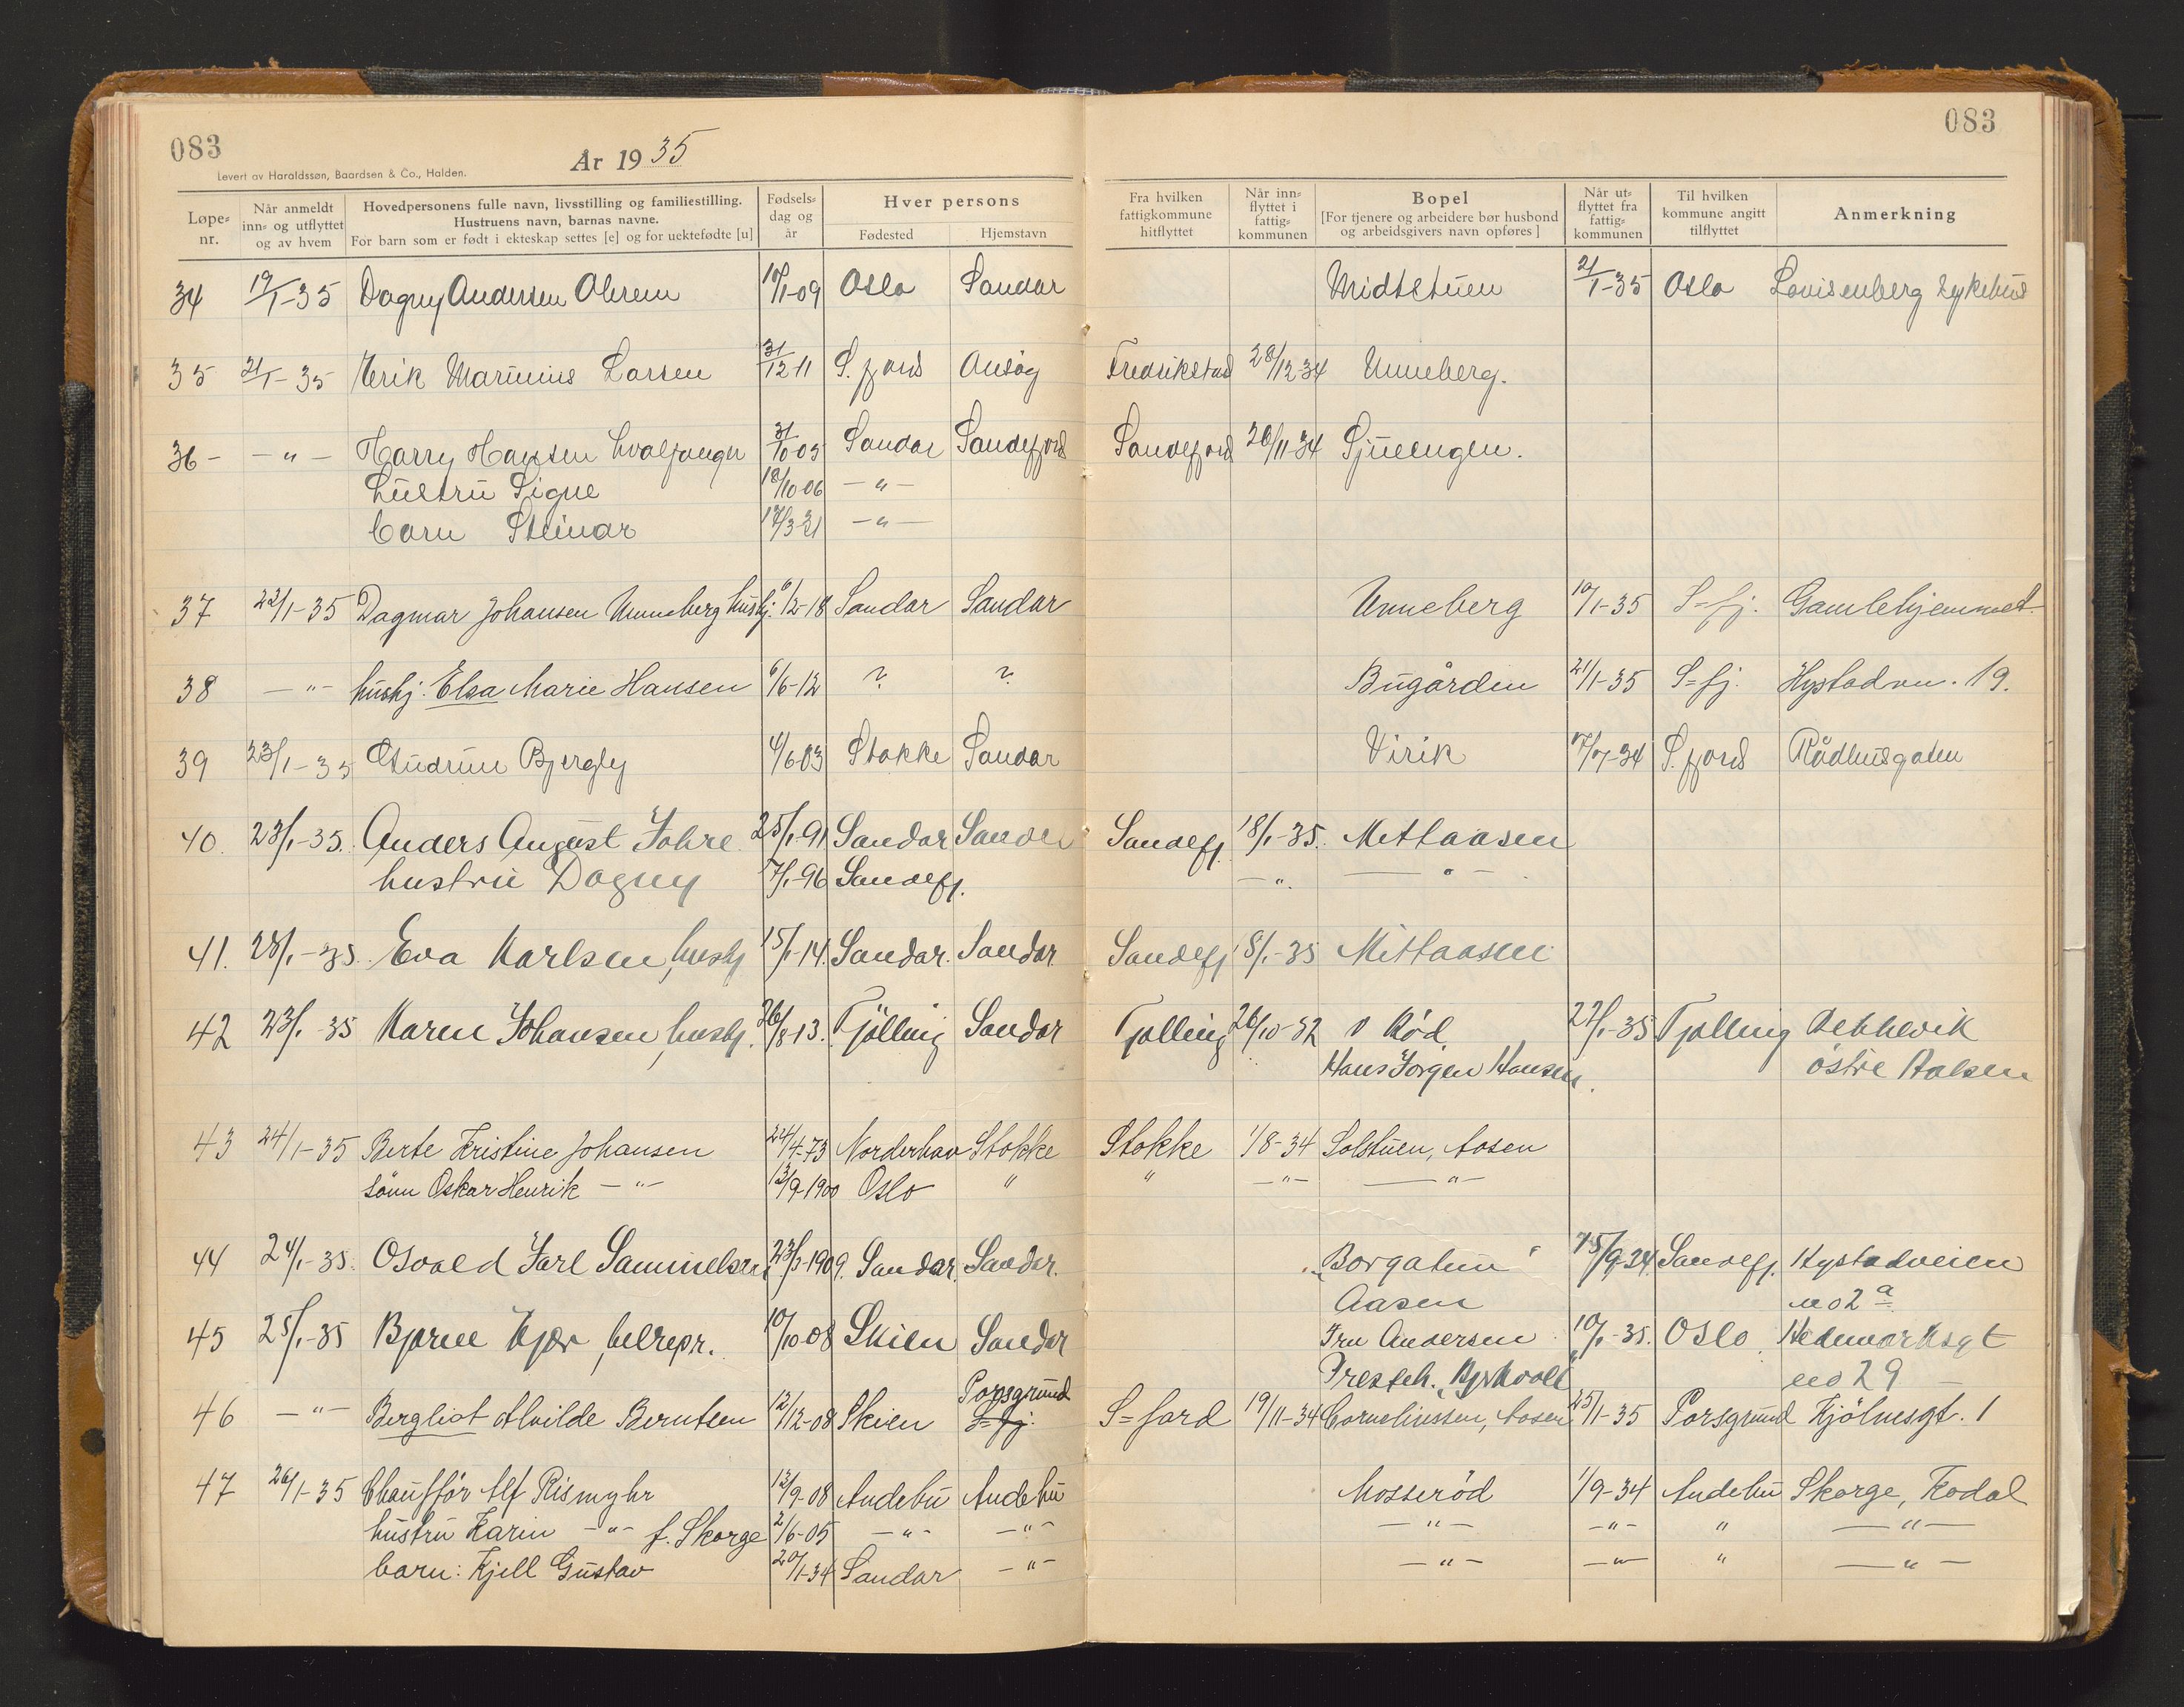 083
083
År 1935
Levert av Haraldssøn, Baardsen & Co., Halden.
Løpe-nr. Når anmeldt inn- og utflyttet og av hvem Hovedpersonens fulle navn, livsstilling og familiestilling. Hustruens navn, barnas navne. For barn som er født i ekteskap settes [e] og for uektefødte [u] Fødsels-dag og år Hver persons Fødested Hjemstavn Fra hvilken fattigkommune hitflyttet Når inn-flyttet i fattig-kommunen Bopel [For tjenere og arbeidere bør husbond og arbeidsgivers navn opføres] Når ut-flyttet fra fattig-kommunen Til hvilken kommune angitt tilflyttet Anmerkning
34 19/1-35 Dagny Andersen 10/1-09 Oslo Sandar Midtstuen 21/1-35 Oslo Lovisenberg sykehus
35 21/1-35 Erik Marinius Larsen 31/12-11 S.fjord Fredrikstad 28/12-34 Unneberg.
36 - - " - Harry Hansen hvalfanger 31/10-05 Sandar Sandefjord Sandefjord 26/11-34
hustru Signe 18/10-06 - " -
barn Steinar - " -
37 22/1-35 Dagmar Johansen Unneberg hushj. 6/12-18 Sandar Sandar Unneberg 10/1-35 S=fj. Gamlehjemmet
38 - " - hushj. Elsa Marie Hansen 6/6-12 ? ? Bugården 21/1-35 S=fj. Hystadvn. 19.
39 23/1-35 Gudrun Bjergly 4/6-03 Stokke Sandar Virik S.fjord Rådhusgaten
40. 23/1-35. Anders August Fohre 25/1-91 Sandar Sandar Sandefj. 18/1-35. Mettaasen
hustru Dagny 7/1-96 Sandefj. - " - - " -
41. 23/1-35. Eva Karlsen, hushj 15/1-14. Sandar. Sandar. Sandefj 18/1-35 Mittaasen
42 23/1-35 Karen Johansen, hushj. 26/8-13. Tjølling Sandar Tjølling 26/10-32 Rød 22/1-35 Tjølling
Hans Jørgen Hansen. østre Halsen
43 24/1-35 Berte Kristine Johansen 24/4-73 Norderhov Stokke Stokke 1/8-34 Solstuen, Aasen
sønn Oskar Henrik - " - 13/9-1900 Oslo " " - " - - " -
44 24/1-35. Osvald Jarl Samuelsen 23/3-1909. Sandar. Sandar. "Borgatun" 15/9-34. Sandefj. Hystadveien
Aasen no 2 a
45 25/1-35 Bjarne Kjær, helrepr. 10/10-08 Skien Sandar Fru Andersen 10/1-35. Oslo. Hedmarksgt
Presteh. no 29
46 - " - Bergliot Alvilde Berntsen 12/12-08 Skien Porsgrund S=fj. S=fjord 19/11-34 Corneliussen, Aasen 25/1-35 Porsgrund Kjølnesgt. 1
47 26/1-35 Chaufför Alf Rismyhr 13/9-08 Andebu Andebu Mosserød 1/9-34 Andebu Skorge, Kodal
hustru Karin - " - f. Skorge 2/6-05 - " - - " - - " - - " - " - " -
barn: Kjell Gustav 20/1-34 Sandar - " - - " - - " - " - " -